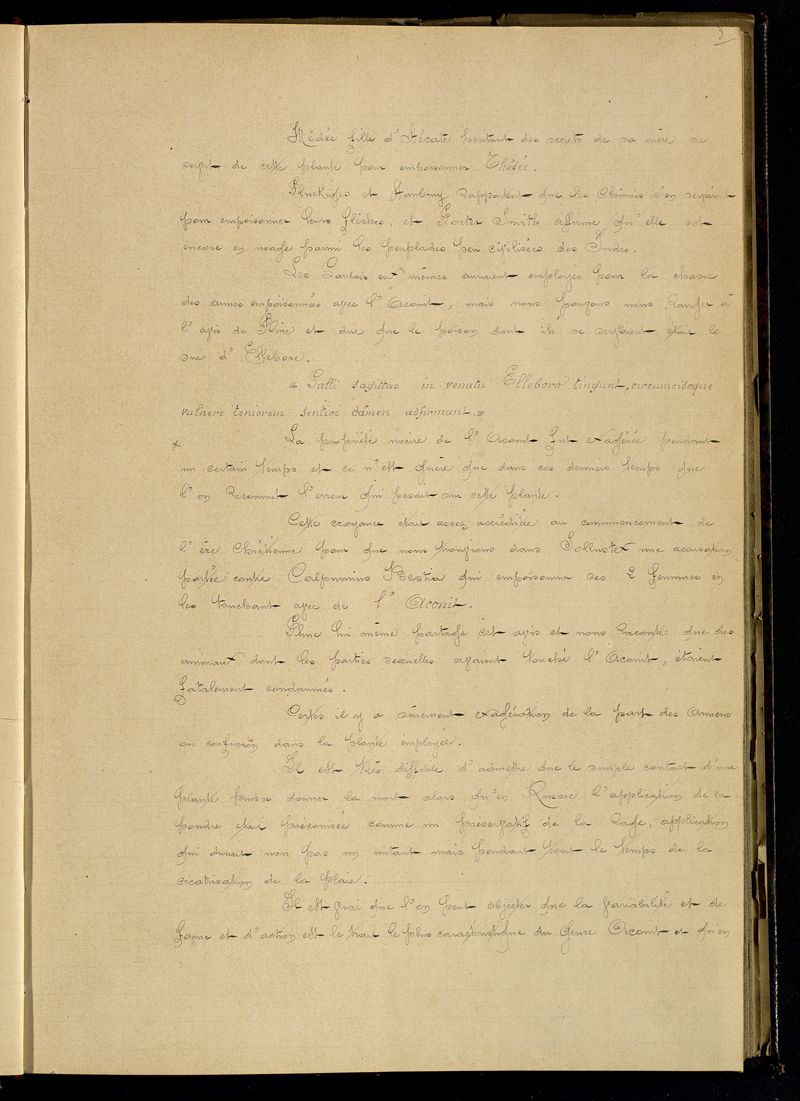 3
Médée fille d'Hécate tentant des secrets de sa mère se
servit de cette plante pour empoisonner Thésée.
et Hanbury rapportent que les Chinois s'en servaient
pour empoisonner leurs flèches, et Porter Smith affirme qu'elle est
encore en usage parmi les peuplades peu civilisées des Indes.
Les Gaulois eux mêmes auraient employés pour la chasse
des armes empoisonnées avec l'Aconit, mais nous pouvons nous ranger à
l'avis de Pline et dire que le poison dont ils se servaient était le
suc d'Ellebore.
« Galli sagittas in venatu Elleboro tingunt, circumcisoque
vulnere teniorem sentiri camen adfirmant. »
x La propriété nocive de l'Aconit fut exagérée pendant
un certain temps et ce n'est guère que dans ces derniers temps que
l'on reconnut l'erreur qui pesait sur cette plante.
Cette croyance était assez accréditée au commencement de
l'ère Chrétienne pour que nous trouvions dans une accusation
portée contre Calpurnius Bestia qui empoisonna ses 2 femmes en
les touchant avec de l'Aconit.
Pline lui même partage cet avis et nous raconte que des
animaux dont les parties sexuelles avaient touché l'Aconit, étaient
fatalement condamnés.
Certes il y a sûrement exagération de la part des Anciens
ou confusion dans la plante employée.
Il est très difficile d'admettre que le simple contact d'une
plante puisse donner la mort alors qu'en Russie l'application de la
poudre était préconisée comme un préservatif de la Rage, application
qui durait non pas un instant mais pendant tout le temps de la
cicatrisation de la plaie.
Il est vrai que l'on peut objecter que la variabilité et de
forme et d'action est le trait le plus caractéristique du genre Aconit et qu'en